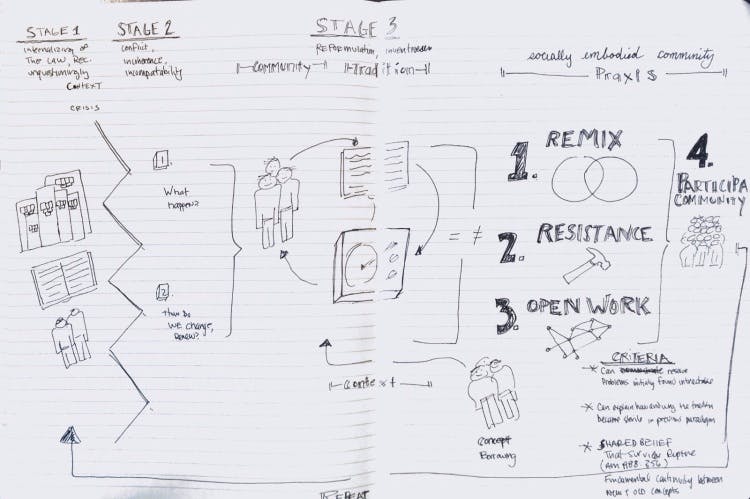 STAGE 1
internalizing of
The Law, Rec.
unquestioningly
CONTEXT
CRISIS
STAGE 2
conflict,
incoherence,
incompatability
STAGE 3
REFORMULATION,
COMMUNITY
Tradition
socially embodied community
PRAXIS
1
What
happen?
2
How Do
WE change,
Renew?
= ≠
1. REMIX
2. RESISTANCE
3. OPEN WORK
4.
PARTICIPA
COMMUNITY
context
Concept
Borrowing
CRITERIA
* Can resolve
Problems initially found intractable
* Can explain how and why the tradition
became sterile in previous paradigm
* SHARED BELIEF
That survive Rupture
356)
Fundamental continuity between
new & old concepts
REPEAT